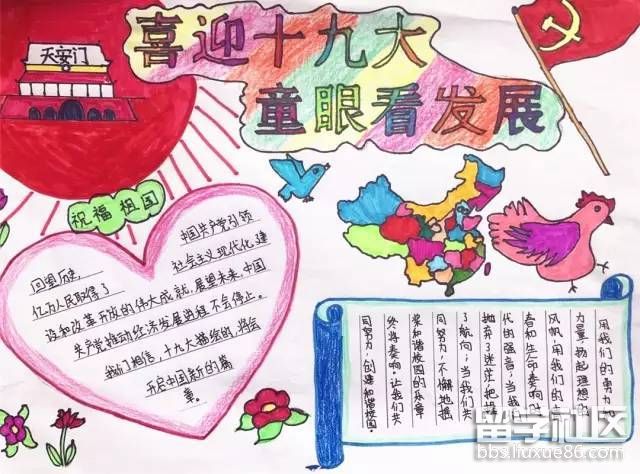 喜迎十九大
童眼看发展
天安门
祝福祖国
中国共产党引领
社会主义现代化建
回望历史,
亿万人民取得了
设和改革开放的伟大成就,展望未来,中国
共产党推动经济发展进程不会停止。
我们相信,十九大描绘的,将会
开启中国新的篇
章。
用我们的勇力
力量,扬起理想的
风帆,用我们的
春和生命奏响
代的强音;当我
抛弃了迷茫,把握
了航向;当我们共
同努力,不懈地摇
桨和谐校园的乐章
终将奏响。让我们共
同努力,创建和谐校园。
留学社区
bbs.liuxue86.com